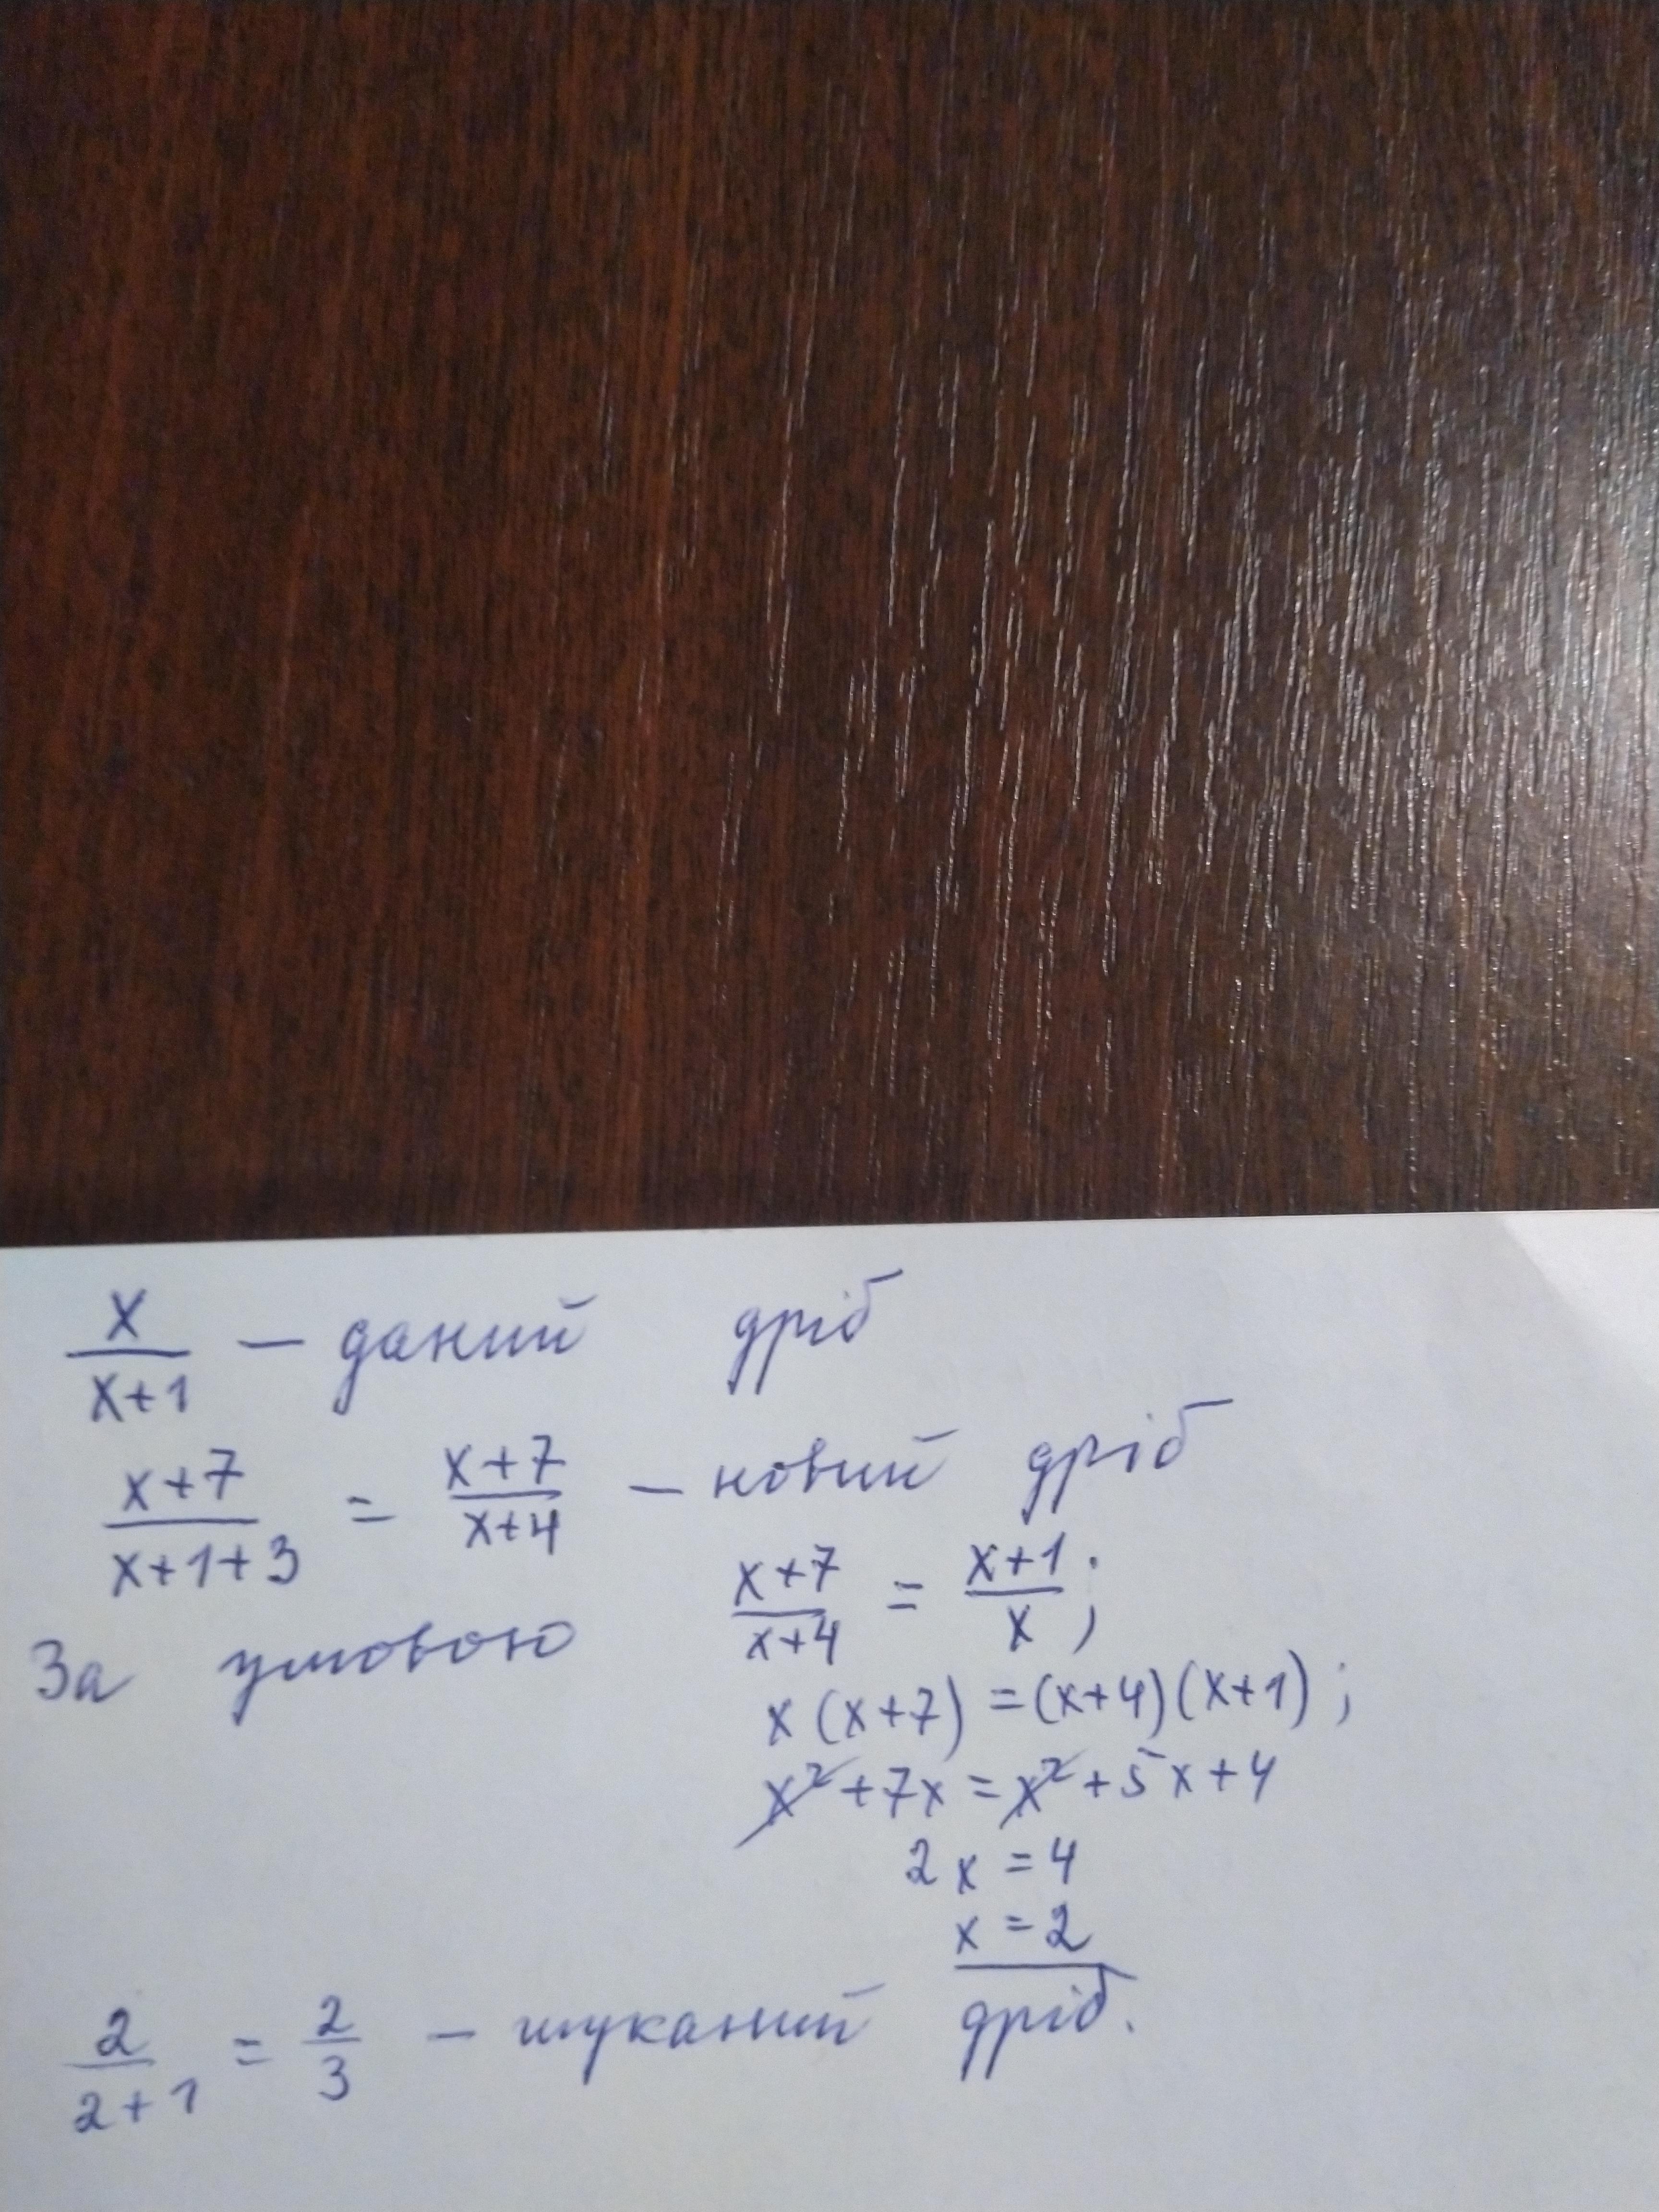 x/(x+1) – даний дріб
(x+7)/(x+1+3) = (x+7)/(x+4) – новий дріб
За умовою (x+7)/(x+4) = (x+1)/x ;
x(x+7) = (x+4)(x+1) ;
x²+7x = x²+5x+4
2x = 4
x = 2
2/(2+1) = 2/3 – шуканий дріб.